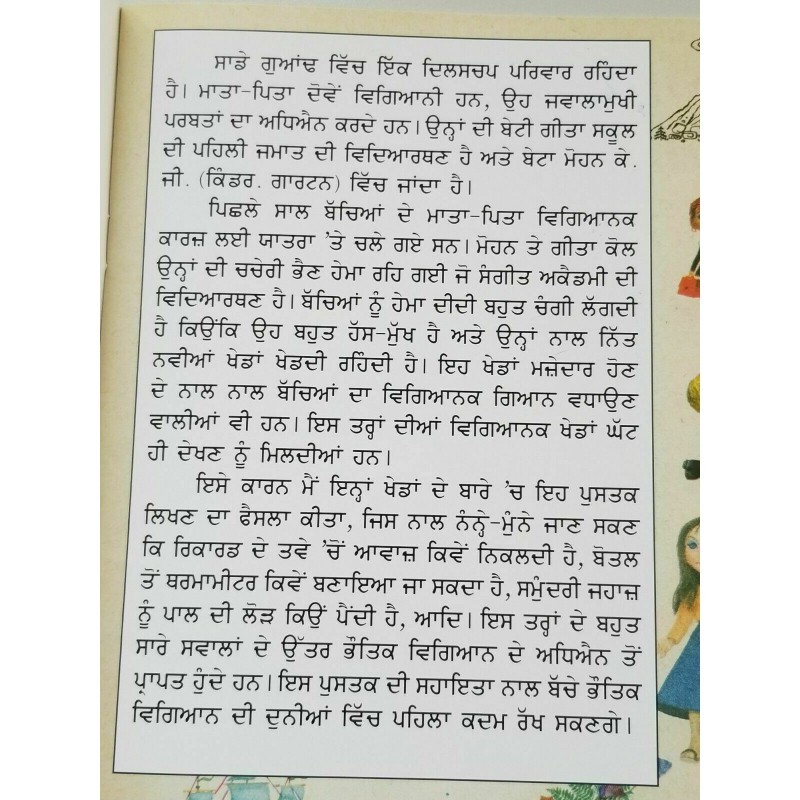 ਸਾਡੇ ਗੁਆਂਢ ਵਿੱਚ ਇੱਕ ਦਿਲਸਚਪ ਪਰਿਵਾਰ ਰਹਿੰਦਾ
ਹੈ। ਮਾਤਾ-ਪਿਤਾ ਦੋਵੇਂ ਵਿਗਿਆਨੀ ਹਨ, ਉਹ ਜਵਾਲਾਮੁਖੀ
ਪਰਬਤਾਂ ਦਾ ਅਧਿਐਨ ਕਰਦੇ ਹਨ। ਉਨ੍ਹਾਂ ਦੀ ਬੇਟੀ ਗੀਤਾ ਸਕੂਲ
ਦੀ ਪਹਿਲੀ ਜਮਾਤ ਦੀ ਵਿਦਿਆਰਥਣ ਹੈ ਅਤੇ ਬੇਟਾ ਮੋਹਨ ਕੇ.
ਜੀ. (ਕਿੰਡਰ. ਗਾਰਟਨ) ਵਿੱਚ ਜਾਂਦਾ ਹੈ।
ਪਿਛਲੇ ਸਾਲ ਬੱਚਿਆਂ ਦੇ ਮਾਤਾ-ਪਿਤਾ ਵਿਗਿਆਨਕ
ਕਾਰਜ਼ ਲਈ ਯਾਤਰਾ 'ਤੇ ਚਲੇ ਗਏ ਸਨ। ਮੋਹਨ ਤੇ ਗੀਤਾ ਕੋਲ
ਉਨ੍ਹਾਂ ਦੀ ਚਚੇਰੀ ਭੈਣ ਹੇਮਾ ਰਹਿ ਗਈ ਜੋ ਸੰਗੀਤ ਅਕੈਡਮੀ ਦੀ
ਵਿਦਿਆਰਥਣ ਹੈ। ਬੱਚਿਆਂ ਨੂੰ ਹੇਮਾ ਦੀਦੀ ਬਹੁਤ ਚੰਗੀ ਲੱਗਦੀ
ਹੈ ਕਿਉਂਕਿ ਉਹ ਬਹੁਤ ਹੱਸ-ਮੁੱਖ ਹੈ ਅਤੇ ਉਨ੍ਹਾਂ ਨਾਲ ਨਿੱਤ
ਨਵੀਆਂ ਖੇਡਾਂ ਖੇਡਦੀ ਰਹਿੰਦੀ ਹੈ। ਇਹ ਖੇਡਾਂ ਮਜ਼ੇਦਾਰ ਹੋਣ
ਦੇ ਨਾਲ ਨਾਲ ਬੱਚਿਆਂ ਦਾ ਵਿਗਿਆਨਕ ਗਿਆਨ ਵਧਾਉਣ
ਵਾਲੀਆਂ ਵੀ ਹਨ। ਇਸ ਤਰ੍ਹਾਂ ਦੀਆਂ ਵਿਗਿਆਨਕ ਖੇਡਾਂ ਘੱਟ
ਹੀ ਦੇਖਣ ਨੂੰ ਮਿਲਦੀਆਂ ਹਨ।
ਇਸੇ ਕਾਰਨ ਮੈਂ ਇਨ੍ਹਾਂ ਖੇਡਾਂ ਦੇ ਬਾਰੇ 'ਚ ਇਹ ਪੁਸਤਕ
ਲਿਖਣ ਦਾ ਫੈਸਲਾ ਕੀਤਾ, ਜਿਸ ਨਾਲ ਨੰਨ੍ਹੇ-ਮੁੰਨੇ ਜਾਣ ਸਕਣ
ਕਿ ਰਿਕਾਰਡ ਦੇ ਤਵੇ 'ਚੋਂ ਆਵਾਜ਼ ਕਿਵੇਂ ਨਿਕਲਦੀ ਹੈ, ਬੋਤਲ
ਤੋਂ ਥਰਮਾਮੀਟਰ ਕਿਵੇਂ ਬਣਾਇਆ ਜਾ ਸਕਦਾ ਹੈ, ਸਮੁੰਦਰੀ ਜਹਾਜ਼
ਨੂੰ ਪਾਲ ਦੀ ਲੋੜ ਕਿਉਂ ਪੈਂਦੀ ਹੈ, ਆਦਿ। ਇਸ ਤਰ੍ਹਾਂ ਦੇ ਬਹੁਤ
ਸਾਰੇ ਸਵਾਲਾਂ ਦੇ ਉੱਤਰ ਭੌਤਿਕ ਵਿਗਿਆਨ ਦੇ ਅਧਿਐਨ ਤੋਂ
ਪ੍ਰਾਪਤ ਹੁੰਦੇ ਹਨ। ਇਸ ਪੁਸਤਕ ਦੀ ਸਹਾਇਤਾ ਨਾਲ ਬੱਚੇ ਭੌਤਿਕ
ਵਿਗਿਆਨ ਦੀ ਦੁਨੀਆਂ ਵਿੱਚ ਪਹਿਲਾ ਕਦਮ ਰੱਖ ਸਕਣਗੇ।